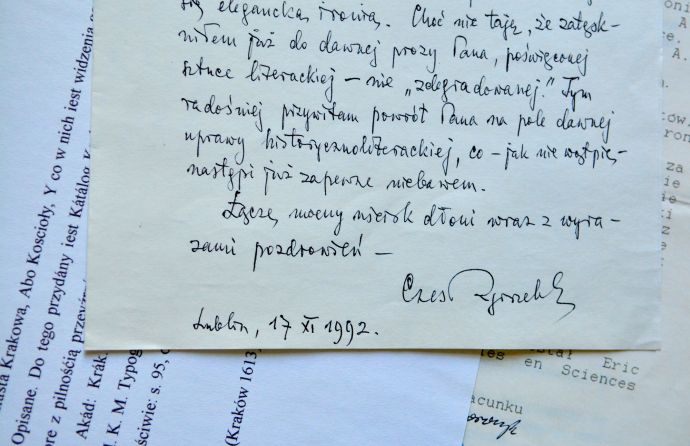 się elegancką ironią. Choć nie taję, że zatęsk-
niłem już do dawnej prozy Pana, poświęconej
sztuce literackiej – nie „zdegradowanej." Tym
radośniej przywitam powrót Pana na pole dawnej
uprawy historycznoliterackiej, co – jak nie wątpię –
nastąpi już zapewne niebawem.
Łączę mocny uścisk dłoni wraz z wyra-
zami pozdrowień –
Czes Zgorzelski
Lublin, 17 XI 1992.
asta Krakowa, Abo Kościoły, Y co w nich iest widzenia g
Opisane. Do tego przydány iest Kátálog K
ore z pilnością przeyźr
Akád: Krák.
I. K. M. Typog
ściwie: s. 95, c
(Kraków 1613,
stał Eric
es en Sciences
acunku